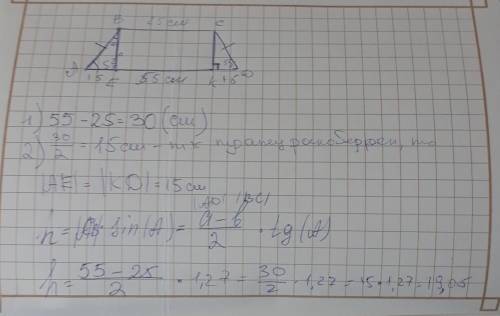 B 25 см C
A 15 E 55 см K 15 D
1) 55-25=30 (см)
2) 30/2 = 15 см - тк трапец равнобедрен, то
|AE| = |KD| = 15 см
|AD| |BC|
h = |AB| · sin(A) = (a-b)/2 · tg(A)
h = (55-25)/2 · 1,27 = 30/2 · 1,27 = 15 · 1,27 = 19,05